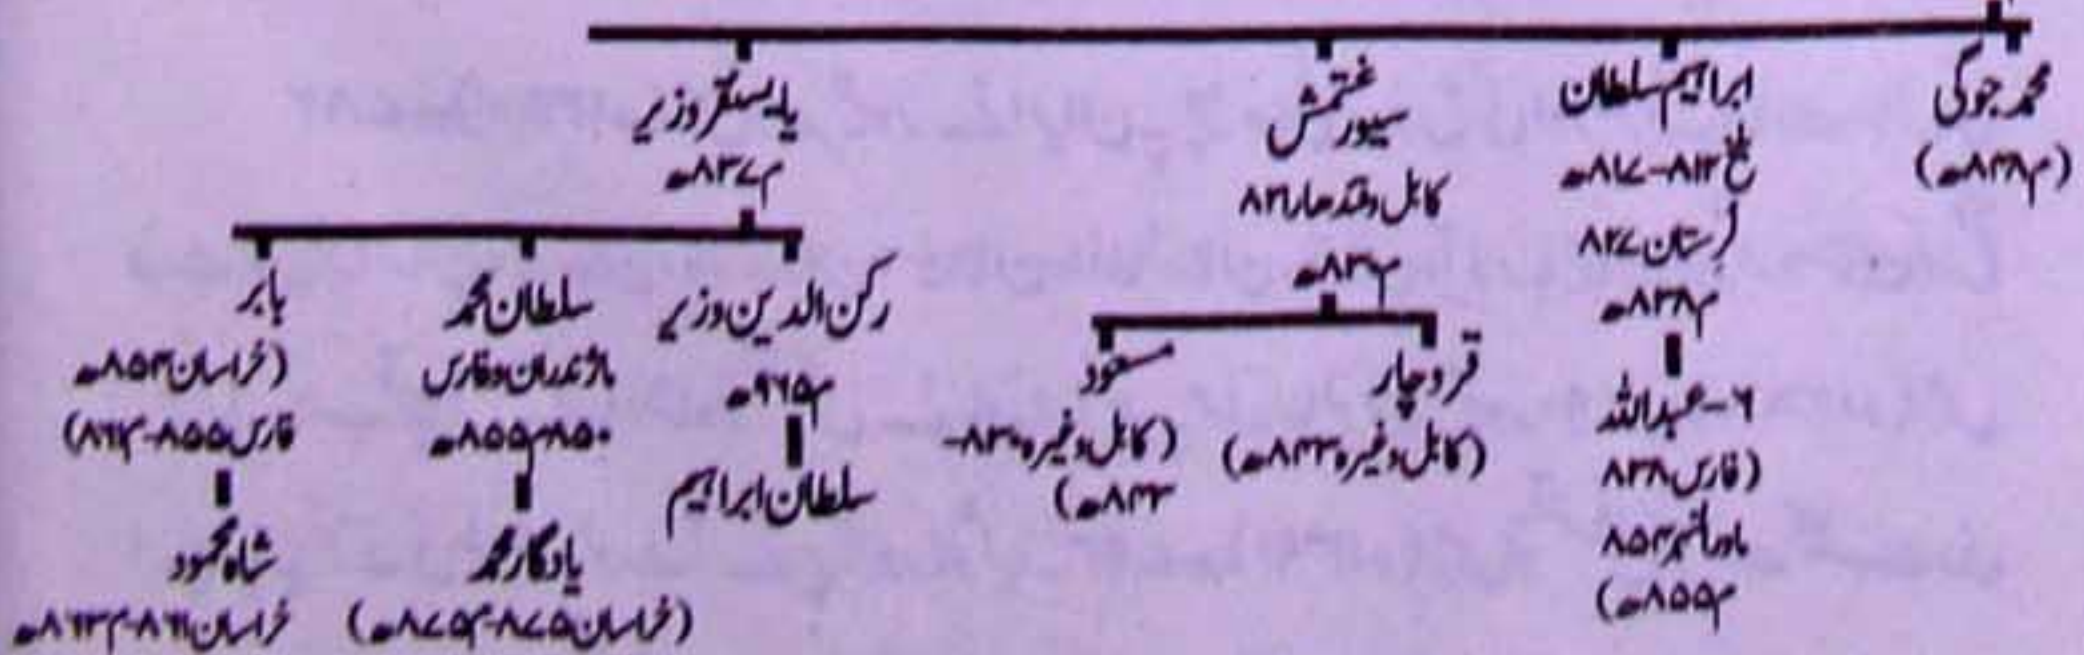 محمد جوکی
(م۸۳۸ھ)
ابراہیم سلطان
بلخ ۸۱۲-۸۱۷ھ
لرستان ۸۲۷
م۸۳۸ھ
۶-عبداللہ
(فارس ۸۳۸
ماوراءالنہر ۸۵۳
م۸۵۵ھ)
غتمش
سیور
کابل وقندھار ۸۲۱
م۸۳۰ھ
قروچار
(کابل وغیرہ ۸۳۳ھ)
مسعود
(کابل وغیرہ ۸۳۰-
۸۳۳ھ)
بایسنقر وزیر
م۸۳۷ھ
رکن الدین وزیر
م۹۶۵ھ
سلطان ابراہیم
سلطان محمد
ماژندران وفارس
۸۵۰-م۸۵۵ھ
یادگار محمد
(خراسان ۸۷۵-م۸۷۵ھ)
بابر
(خراسان ۸۵۳ھ
فارس ۸۵۵-م۸۶۱)
شاہ محمود
خراسان ۸۶۱-م۸۶۳ھ